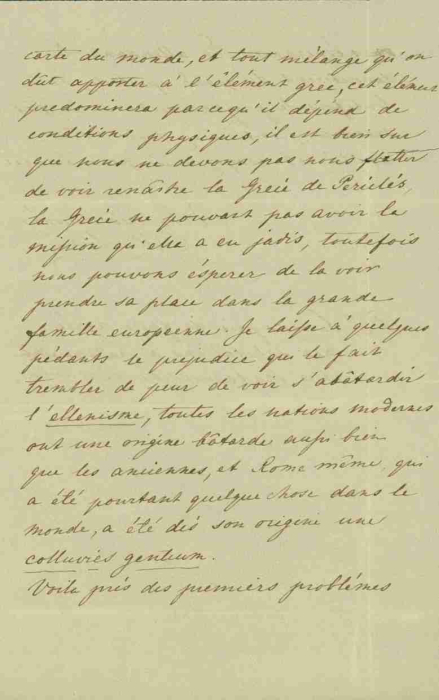 carte du monde, et tout mélange qu'on
dût apporter à l'élément grec, cet élément
predominera parcequ'il dépend de
conditions physiques, il est bien sur
que nous ne devons pas nous flatter
de voir renaître la Grèce de Periclés,
la Grèce ne pouvant pas avoir la
mission qu'elle a eu jadis, toutefois
nous pouvons éspérer de la voir
prendre sa place dans la grande
famille européenne. Je laisse à quelques
pédants le prejudice qui le fait
trembler de peur de voir s'abâtardir
l'ellenisme, toutes les nations modernes
ont une origine bâtarde aussi bien
que les anciennes, et Rome même, qui
a été pourtant quelque chose dans le
monde, a été dés son origine une
colluvies gentium.
Voila prés des premiers problémes